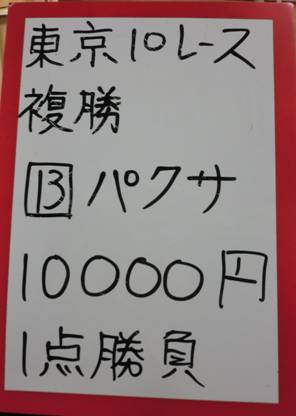 東京10レース
複勝
13 パクサ
10000円
1点勝負